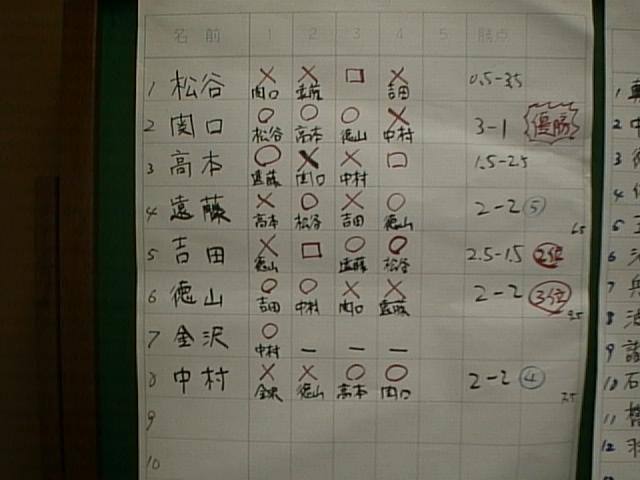 名 前 1 2 3 4 5 勝点
1 松谷 × × □ × 0.5-3.5
関口 遠藤 吉田
2 関口 ○ ○ ○ × 3-1 優勝
松谷 高本 徳山 中村
3 高本 ○ × × □ 1.5-2.5
遠藤 関口 中村
4 遠藤 × ○ × ○ 2-2 ⑤
高本 松谷 吉田 徳山 6.5
5 吉田 × □ ○ ○ 2.5-1.5 2位
徳山 遠藤 松谷
6 徳山 ○ ○ × × 2-2 3位
吉田 中村 関口 遠藤 9.5
7 金沢 ○ - - -
中村
8 中村 × × ○ ○ 2-2 ④
金沢 徳山 高本 関口 7.5
9
10
1
2 中
3
4
5
6
7
8 池
9
10 石
11
12